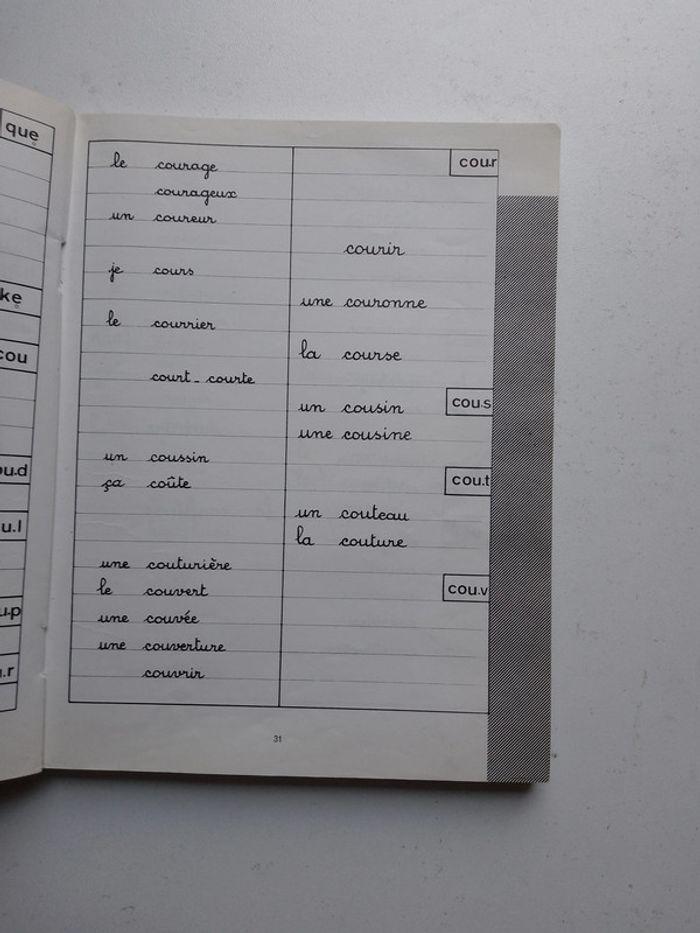 que
ke
cou
ou.d
u.l
u.p
.r
cou.r
le courage
courageux
un coureur
courir
je cours
une couronne
le courrier
la course
court - courte
cou.s
un cousin
une cousine
un coussin
cou.t
ça coûte
un couteau
la couture
une couturière
cou.v
le couvert
une couvée
une couverture
couvrir
31